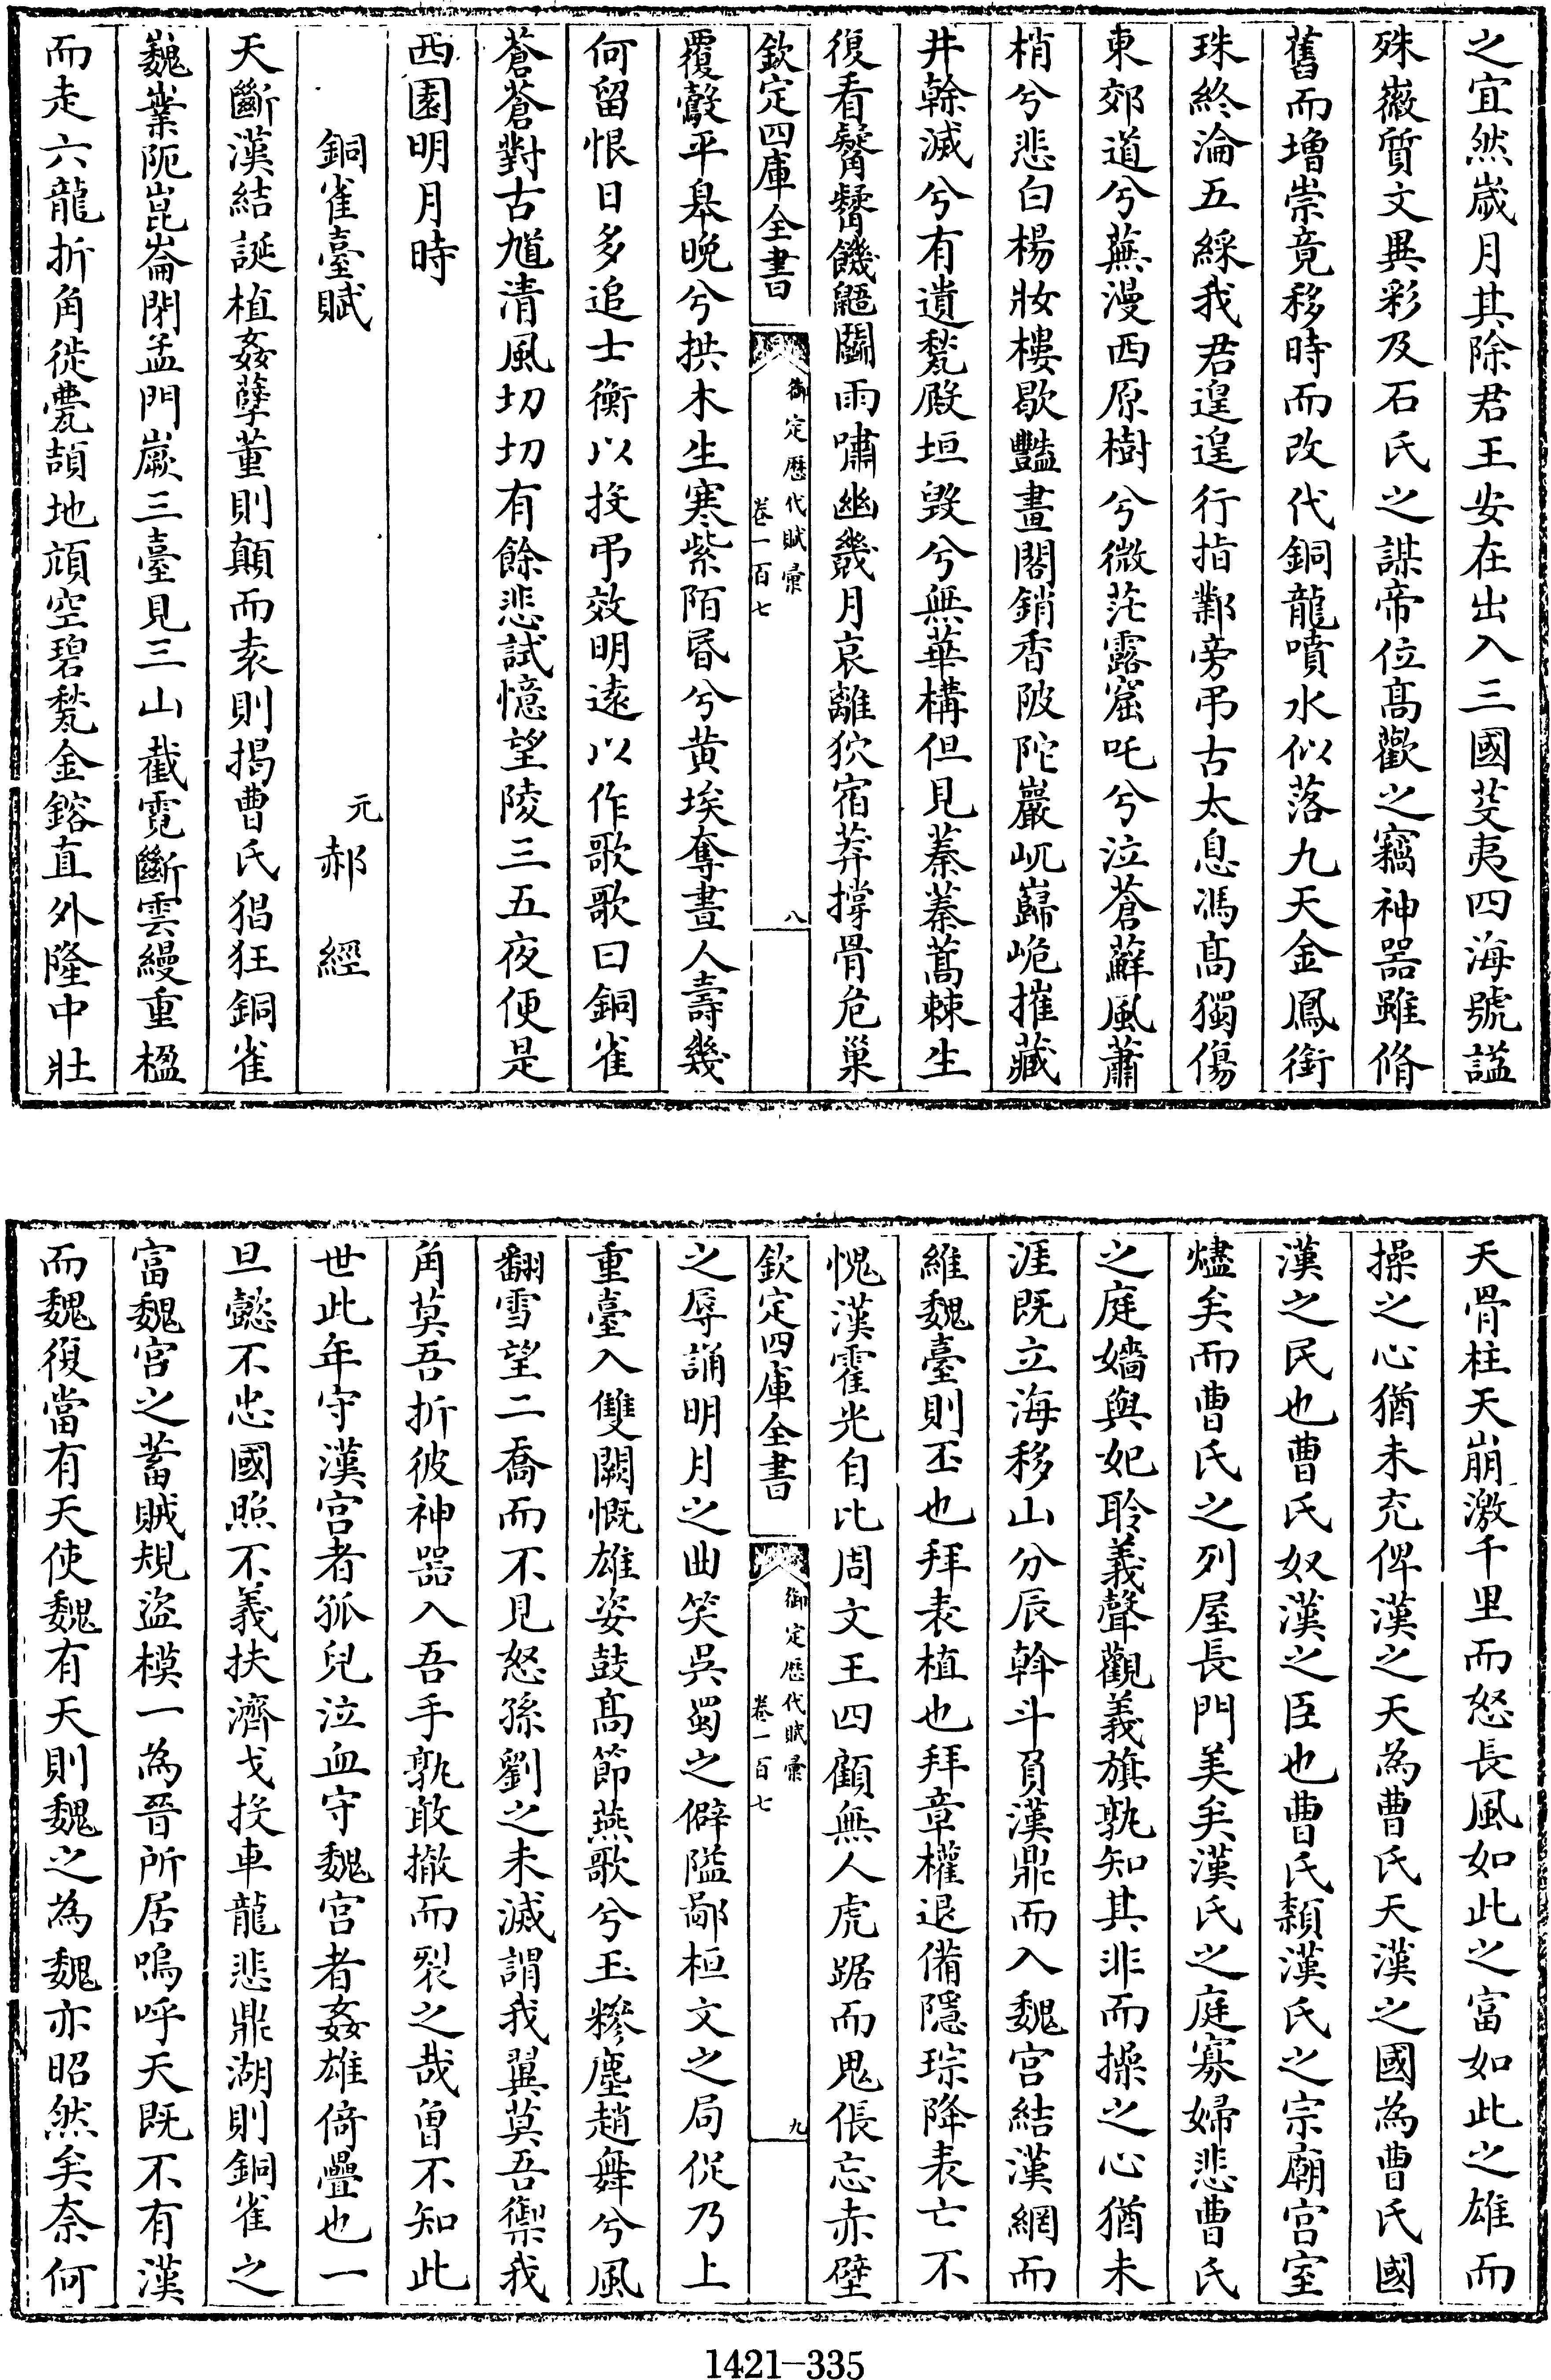 之宜然嵗月其除君王安在出入三國芟夷四海號謚
殊㣲質文異彩及石氏之謀帝位髙歡之竊神器雖脩
舊而増崇竟移時而改代銅龍噴水似落九天金鳳銜
珠終淪五綵我君遑遑行指鄴旁弔古太息馮髙獨傷
東郊道兮蕪漫西原樹兮微茫露窟吒兮泣蒼蘚風蕭
梢兮悲白楊妝樓歇豔畫閣銷香陂陀巖屼巋峗摧藏
井榦滅兮有遺甃殿垣毀兮無華構但見蓁蓁蒿棘生
復看鬇鬡饑鼯鬭雨嘯幽鬾月哀離狖宿莽撐骨危巢
欽定四庫全書 御定歴代賦彙 卷一百七 八
覆鷇平臯晚兮拱木生寒紫陌昏兮黄埃奪晝人壽幾
何留恨日多追士衡以投弔效明逺以作歌歌曰銅雀
蒼蒼對古馗清風切切有餘悲試憶望陵三五夜便是
西園明月時
銅雀臺賦 元 郝經
天斷漢結誕植姦孽董則顛而袁則揭曹氏猖狂銅雀
巍業阨崑崙閉孟門嶡三臺見三山截霓斷雲縵重楹
而走六龍折角徙甍頡地頏空碧甃金鎔直外隆中壯
天骨柱天崩激千里而怒長風如此之富如此之雄而
操之心猶未充俾漢之天為曹氏天漢之國為曹氏國
漢之民也曹氏奴漢之臣也曹氏纇漢氏之宗廟宫室
燼矣而曹氏之列屋長門美矣漢氏之庭寡婦悲曹氏
之庭嬙與妃聆義聲觀義旗孰知其非而操之心猶未
涯既立海移山分辰斡斗負漢鼎而入魏宫結漢網而
維魏臺則丕也拜表植也拜章權退備隱琮降表亡不
愧漢霍光自比周文王四顧無人虎踞而鬼倀忘赤壁
欽定四庫全書 御定歴代賦彙 卷一百七 九
之辱誦明月之曲笑吳蜀之僻隘鄙桓文之局促乃上
重臺入雙闕慨雄姿鼓髙節燕歌兮玉糝塵趙舞兮風
翻雪望二喬而不見怒孫劉之未滅謂我翼莫吾禦我
角莫吾折彼神器入吾手孰敢撤而裂之哉曽不知此
世此年守漢宫者孤兒泣血守魏宫者姦雄倚疊也一
旦懿不忠國照不義扶濟戈投車龍悲鼎湖則銅雀之
富魏宫之蓄賊規盜模一為晉所居嗚呼天既不有漢
而魏復當有天使魏有天則魏之為魏亦昭然矣奈何
1421-335